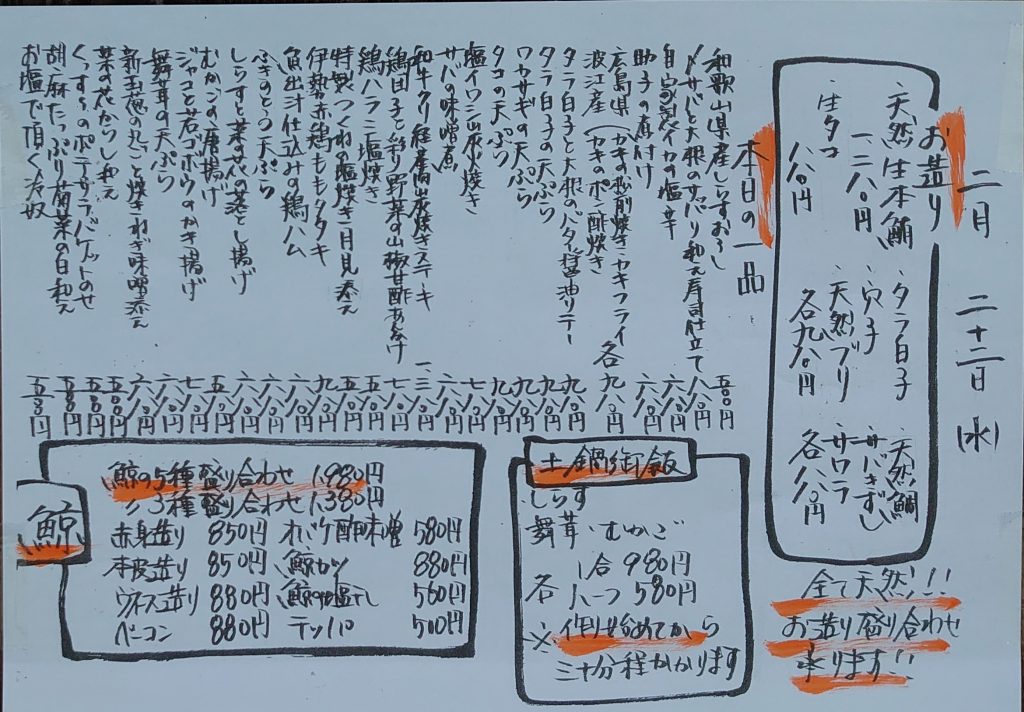 二月 二十二日(水)
お造り
・天然生本鮪 ・タラ白子 ・天然鯛
一、二八〇円 ・穴子 ・サバきずし
・生タコ ・天然ブリ ・サワラ
八八〇円 各九八〇円 各八八〇円
全て天然!!
お造り盛り合わせ
承ります!!
本日の一品
和歌山県産しらすおろし 五〇〇円
〆サバと大根のサッパリ和え寿司仕立て 八八〇円
自家製ヤイカの塩辛 六八〇円
助子の煮付け 六八〇円
広島県(カキの松前焼き・カキフライ 各九八〇円
波江産(カキのポン酢焼き
タラ白子と大根のバター醤油ソテー 九八〇円
タラ白子の天ぷら 九八〇円
ワカサギの天ぷら 九八〇円
タコの天ぷら 九八〇円
塩イワシ炭火焼き 七八〇円
サバの味噌煮 六八〇円
和牛クリ経産高出炭焼きステーキ 一、三八〇円
鶏団子と彩り野菜の山椒甘酢あんかけ 七八〇円
鶏ハラミ塩焼き 五八〇円
特製つくねの塩焼き月見添え 五八〇円
伊勢赤鶏ももタタキ 九八〇円
魚出汁仕込みの鶏ハム 六八〇円
ふきのとう天ぷら 六八〇円
しらすと菜の花の落とし揚げ 七八〇円
むかごの唐揚げ 六八〇円
ジャコと若ゴボウのかき揚げ 七八〇円
舞茸の天ぷら 六八〇円
新玉葱の丸ごと焼きねぎ味噌添え 六八〇円
菜の花からし和え 五八〇円
くっすぅのポテサラバケットのせ 五八〇円
胡麻たっぷり菊菜の白和え 五八〇円
お塩で頂く冷奴 五八〇円
土鍋御飯
しらす
舞茸・むかご
各 1合 980円
ハーフ 580円
※作り始めてから
三十分程かかります
鯨
鯨の5種盛り合わせ 1,980円
〃3種盛り合わせ 1,380円
赤身造り 850円 オバケ酢味噌 580円
本皮造り 850円 鯨カツ 880円
ウネス造り 880円 鯨の塩干し 560円
ベーコン 880円 テッパ 500円